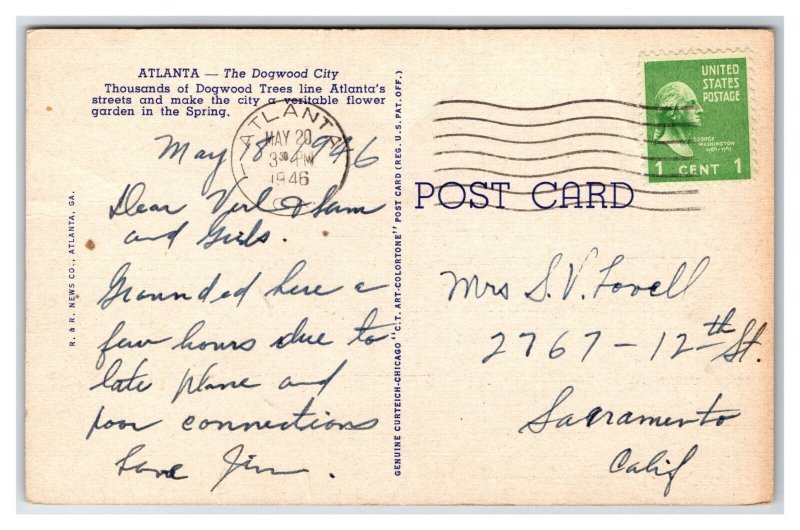 ATLANTA — The Dogwood City
Thousands of Dogwood Trees line Atlanta's
streets and make the city a veritable flower
garden in the Spring.
ATLANTA
MAY 20
3 30 PM
1946
May 18 1946
Dear Verl & Sam
and Girls.
Grounded here a
few hours due to
late plane and
poor connections
Love Jim.
R. & R. NEWS CO., ATLANTA, GA.
GENUINE CURTEICH-CHICAGO "C.T. ART-COLORTONE" POST CARD (REG. U.S. PAT. OFF.)
UNITED
STATES
POSTAGE
GEORGE
WASHINGTON
1789-1797
1 CENT 1
POST CARD
Mrs S. V. Lovell
2767 - 12th St.
Sacramento
Calif